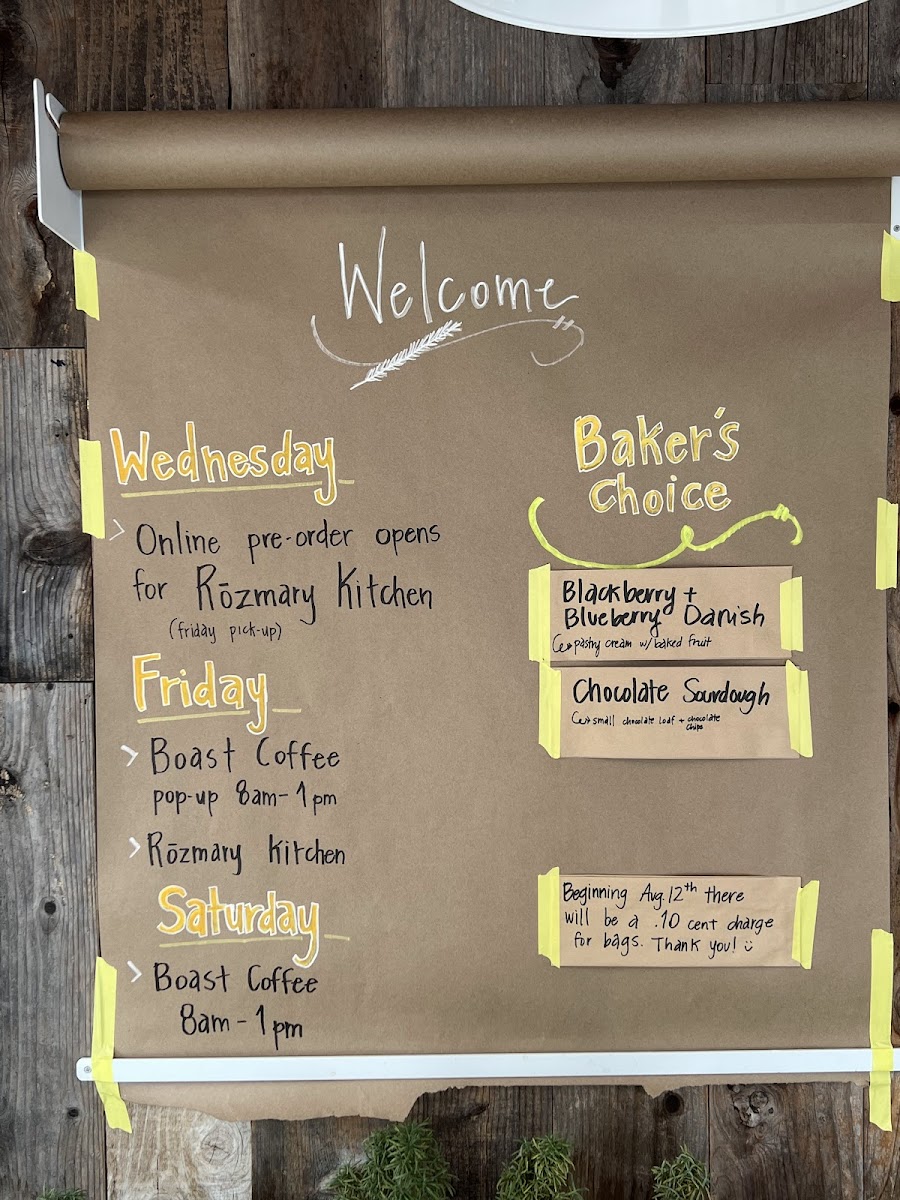 Welcome
Wednesday
Online pre-order opens
for Rōzmary Kitchen
(friday pick-up)
Friday
Boast Coffee
pop-up 8am-1pm
Rōzmary Kitchen
Saturday
Boast Coffee
8am-1pm
Baker's
Choice
Blackberry +
Blueberry Danish
pastry cream w/ baked fruit
Chocolate Sourdough
small chocolate loaf + chocolate
chips
Beginning Aug. 12th there
will be a .10 cent charge
for bags. Thank you!